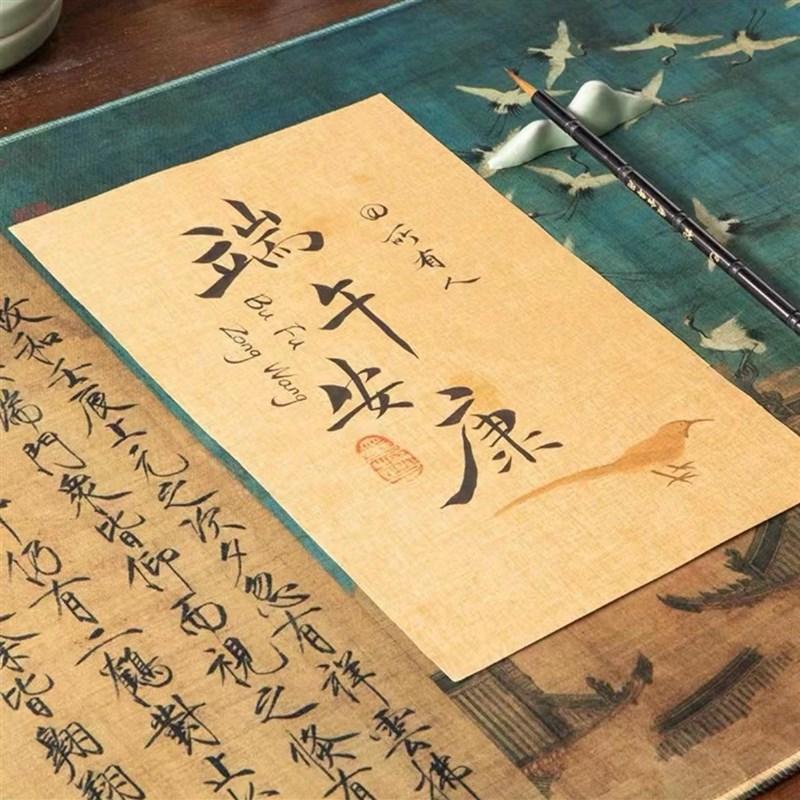 @所有人
端午安康
Bu Fu
Zong Wang
政和壬辰上元之次夕忽有祥雲拂
端門衆皆仰而視之倏有
仍有二鶴對止
皆翱翔